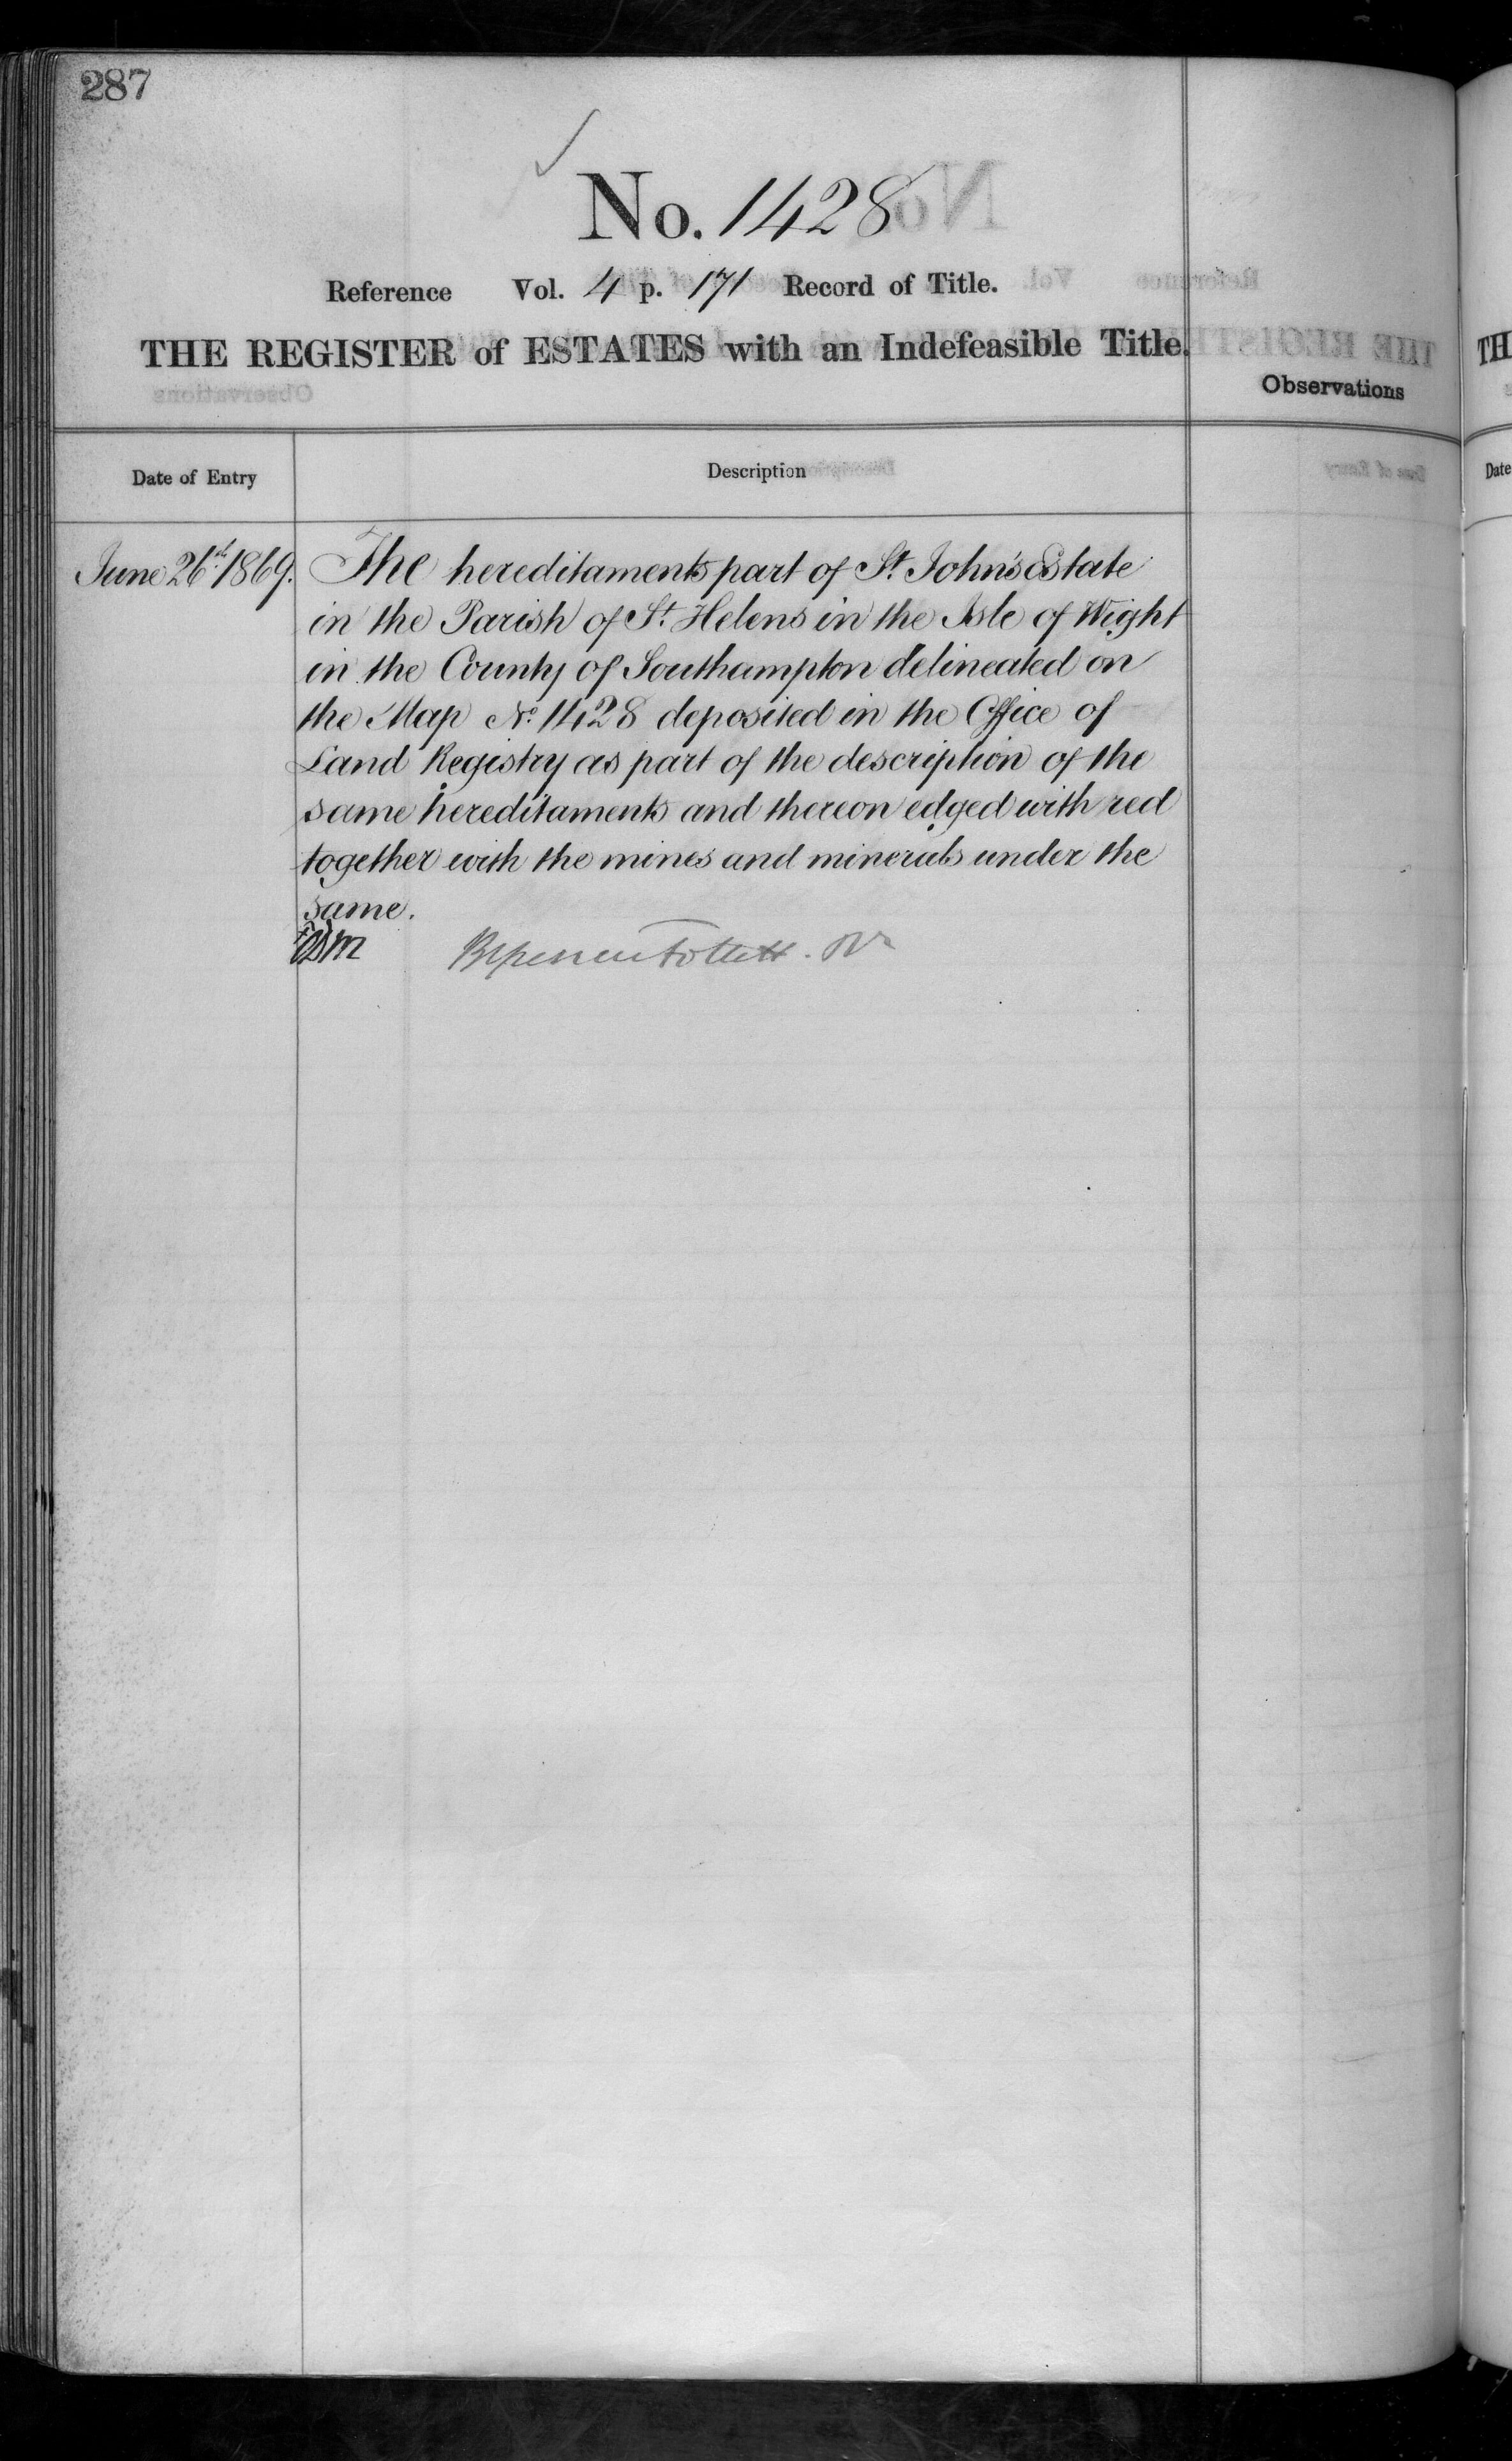 287
No. 1428
Reference Vol. 4 p. 171 Record of Title.
THE REGISTER of ESTATES with an Indefeasible Title.
Observations
Date of Entry
Description
June 26th 1869.
The hereditaments part of St. John's Estate
in the Parish of St. Helens in the Isle of Wight
in the County of Southampton delineated on
the Map No. 1428 deposited in the Office of
Land Registry as part of the description of the
same hereditaments and thereon edged with red
together with the mines and minerals under the
same.
Follett
TH
Date